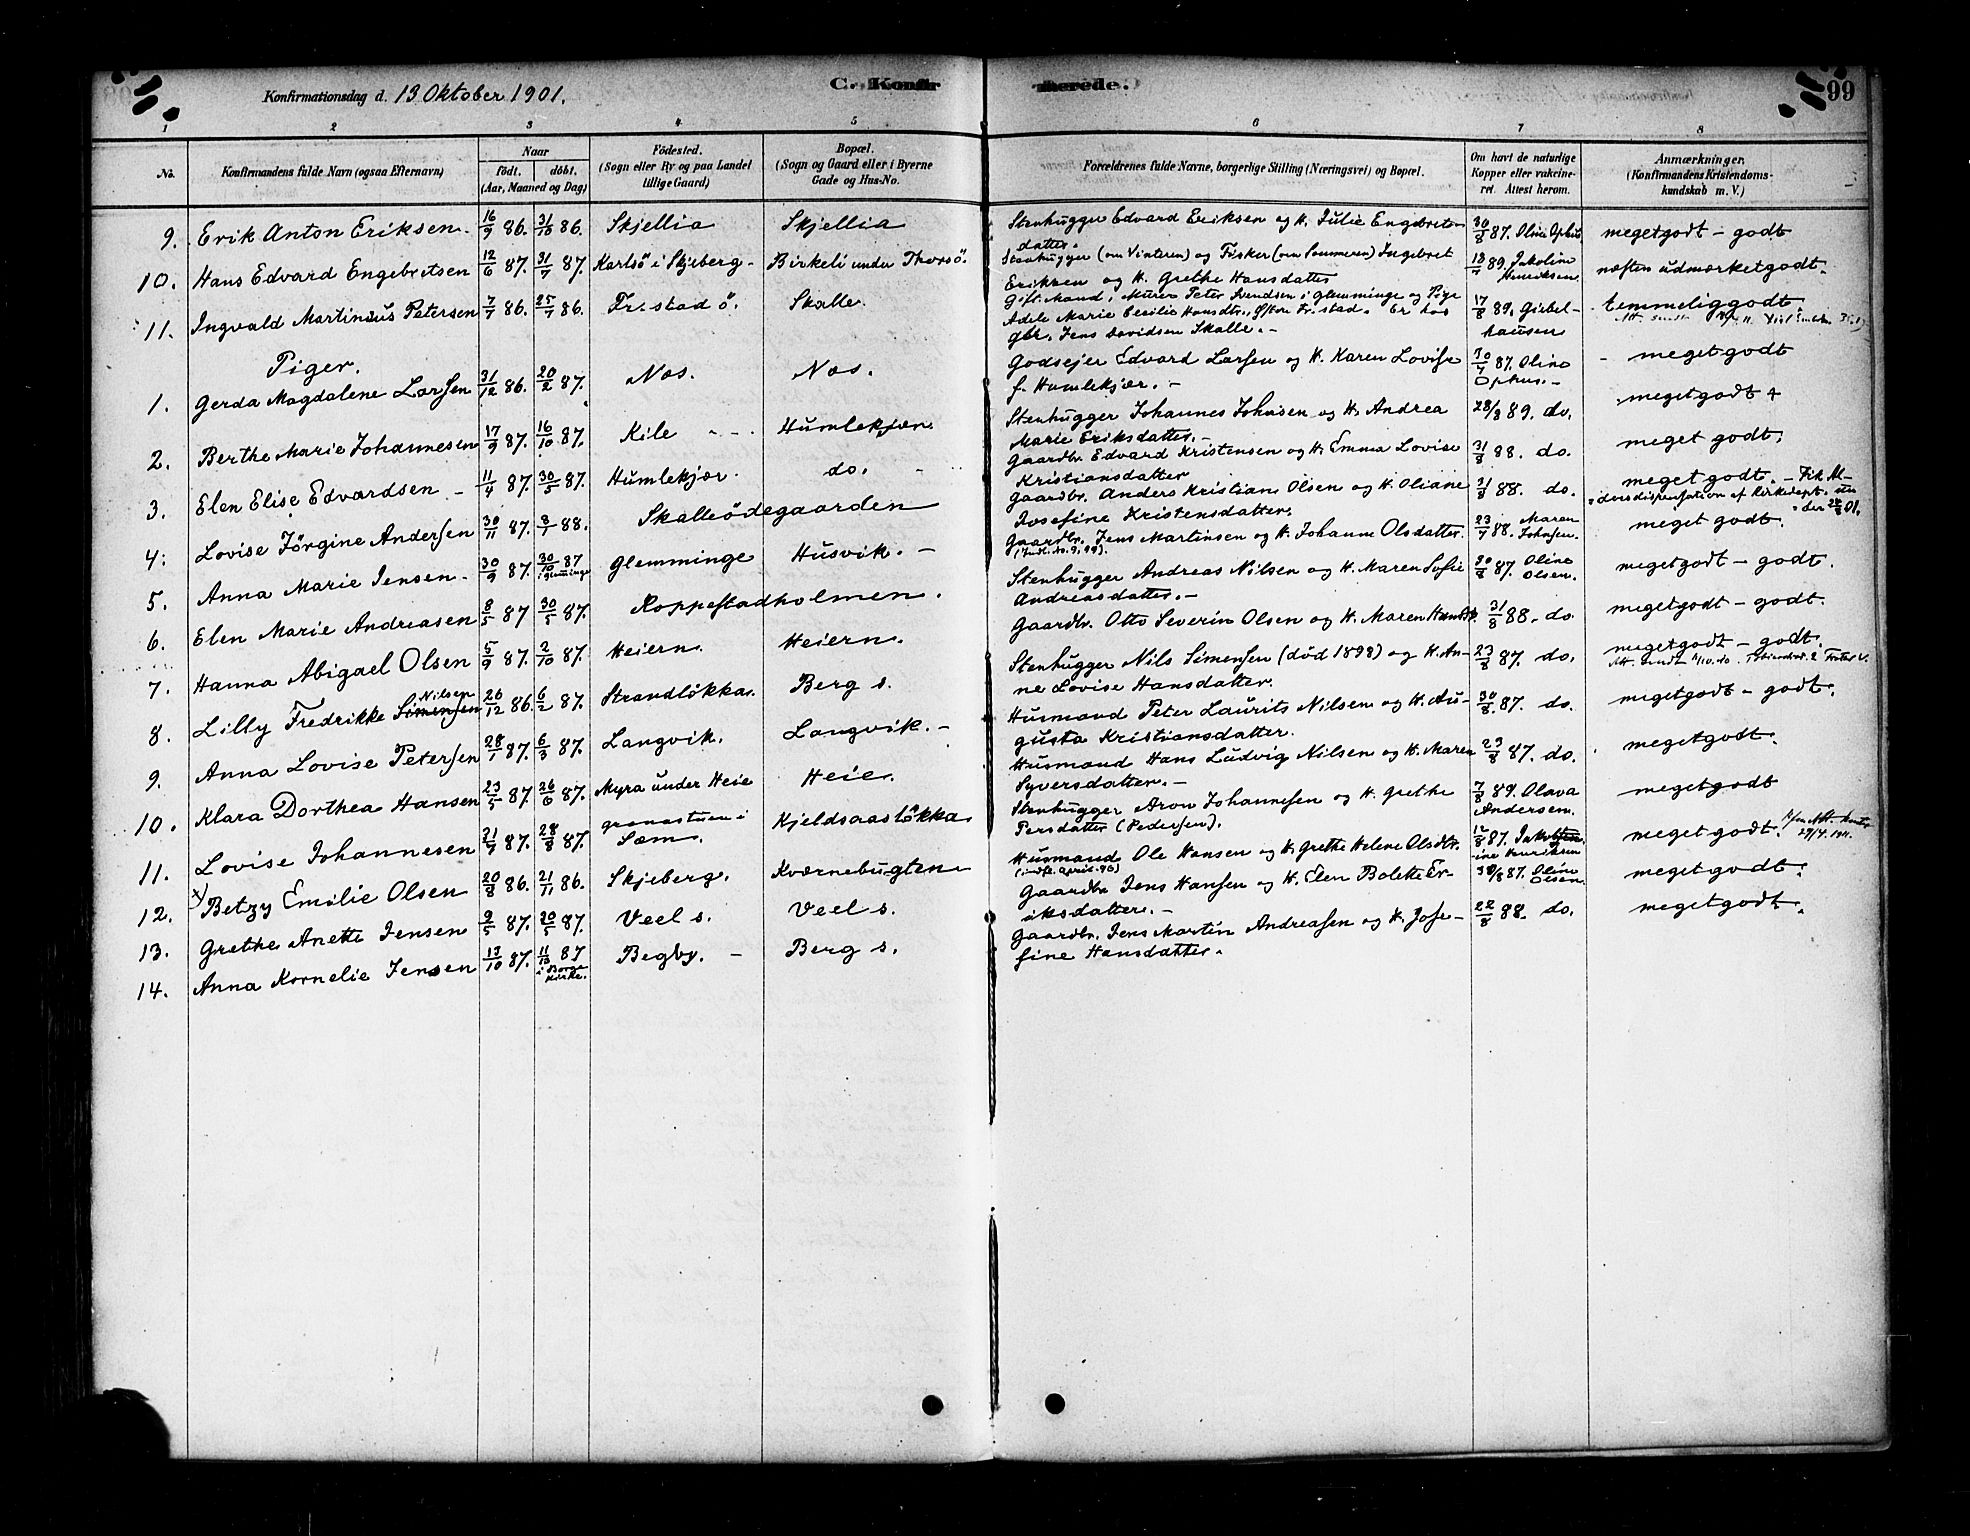 Konfirmationsdag d. 13 Oktober 1901.
C. Konfirmerede.
99
1 2 3 4 5 6 7 8
No.
Konfirmandens fulde Navn (ogsaa Efternavn)
Naar
födt. döbt.
(Aar, Maaned og Dag)
Födested.
(Sogn eller By og paa Landet
tillige Gaard)
Bopæl.
(Sogn og Gaard eller i Byerne
Gade og Hus-No.
Forældrenes fulde Navne, borgerlige Stilling (Næringsvei) og Bopæl.
Om havt de naturlige
Kopper eller vakcine-
ret. Attest herom.
Anmærkninger.
(Konfirmandens Kristendoms-
kundskab m. V.)
9. Erik Anton Eriksen. 16/9 86. 31/10 86. Skjellia Skjellia
Stenhugger Edvard Eriksen og H. Julie Engebrets-
datter.
30/8 87. Oline Ophus
megetgodt – godt
10. Hans Edvard Engebretsen 12/6 87. 31/7 87. Karlsö i Skjeberg - Birkeli under Thorsö.
Stenhugger (om Vinteren) og Fisker (om Sommeren) Ingebret
Eriksen og H. Grethe Hansdatter
89. Jakoline
Henriksen
næsten udmærketgodt.
11. Ingvald Martinius Petersen 7/7 86. 25/7 86. Fr.stad ö. Skalle.
Gift Mand, Murer Peter Svendsen i Glemminge og Pige
Adele Marie Cecilie Hansdtr., Östre Fr.stad. Er hos
gbr. Jens Davidsen Skalle. –
17/8 89. Giebel-
hausen
temmeliggodt.
Piger.
1. Gerda Magdalene Larsen 31/12 86. 20/2 87. Næs. Næs.
Godsejer Edvard Larsen og H. Karen Lovise
f. Humlekjær. –
87. Oline
Ophus. –
megetgodt
2. Berthe Marie Johannesen 17/9 87. 16/10 87. Kile Humlekjær
Stenhugger Johannes Johnsen og H. Andrea
Marie Eriksdatter. –
28/8 89. do.
megetgodt
3. Elen Elise Edvardsen – 11/4 87. 30/5 87. Humlekjær. do.
Gaardbr. Edvard Kristensen og H. Emma Lovise
Kristiansdatter
31/8 88. do.
meget godt.
4. Lovise Jörgine Andersen 30/11 87. 88. Skalleödegaarden
Gaardbr. Anders Kristian Olsen og H. Oliane
Josefine Kristensdatter.
31/8 88. do.
meget godt. – Fik Al-
dersdispensation af Kirkedept.
5. Anna Marie Jensen – 30/9 87. 30/10 87 i Glemminge Glemminge Husvik. –
Gaardbr. Jens Martinsen og H. Johanne Olsdatter.
88. Maren
Johnsen.
meget godt.
6. Elen Marie Andreasen 8/5 87 30/5 87. Koppestadholmen.
Stenhugger Andreas Nilsen og H. Maren Sofie
Andreasdatter. –
30/8 87. Oline
Olsen.
megetgodt – godt.
7. Hanna Abigael Olsen 5/9 87. 2/10 87. Heiern. Heiern.
Gaardbr. Otto Severin Olsen og H. Maren Hansdtr.
31/8 88. do.
megetgodt – godt.
8. Lilly Fredrikke Simensen Nilsen 26/12 86. 6/2 87. Strandlökka. Berg s.
Stenhugger Nils Simensen (död 1898) og H. An-
ne Lovise Hansdatter.
23/8 87. do.
megetgodt – godt.
9. Anna Lovise Petersen 28/1 87. 6/3 87. Langvik. Langvik. –
Husmand Peter Laurits Nilsen og H. Au-
gusta Kristiansdatter.
30/8 87. do.
megetgodt – godt.
10. Klara Dorthea Hansen 23/5 87 26/6 87. Myra under Heie Heie.
Husmand Hans Ludvig Nilsen og H. Maren
Syversdatter. –
23/8 87. do.
megetgodt.
11. Lovise Johannesen 21/7 87. 28/8 87. granastuen i
Sæm. Kjeldsaaslökka
Stenhugger Aron Johannesen og H. Grethe
Persdatter (Pedersen).
7/8 89. Olava
Andersen.
megetgodt
12. Betzy Emilie Olsen 20/8 86. 21/11 86. Skjeberg. Kværnebugten
Husmand Ole Hansen og H. Grethe Helene Olsdtr.
(indfl. april 96)
87.
megetgodt.
29/4. 1911.
13. Grethe Anette Jensen 9/5 87. 20/5 87. Veel s. Veel s.
Gaardbr. Jens Hansen og H. Elen Bolette Er-
iksdatter. –
30/8 87. Oline
Olsen.
megetgodt.
14. Anna Kornelie Jensen 13/10 87. 11/12 87 i Borge Kirke. Begby. – Berg s.
Gaardbr. Jens Martin Andreassen og H. Jose-
fine Hansdatter.
22/8 88. do.
megetgodt.